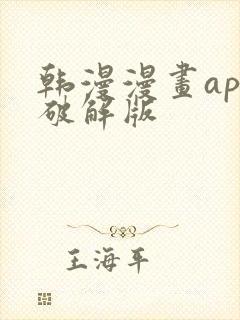 韩漫漫畫ap
破解版
王海平